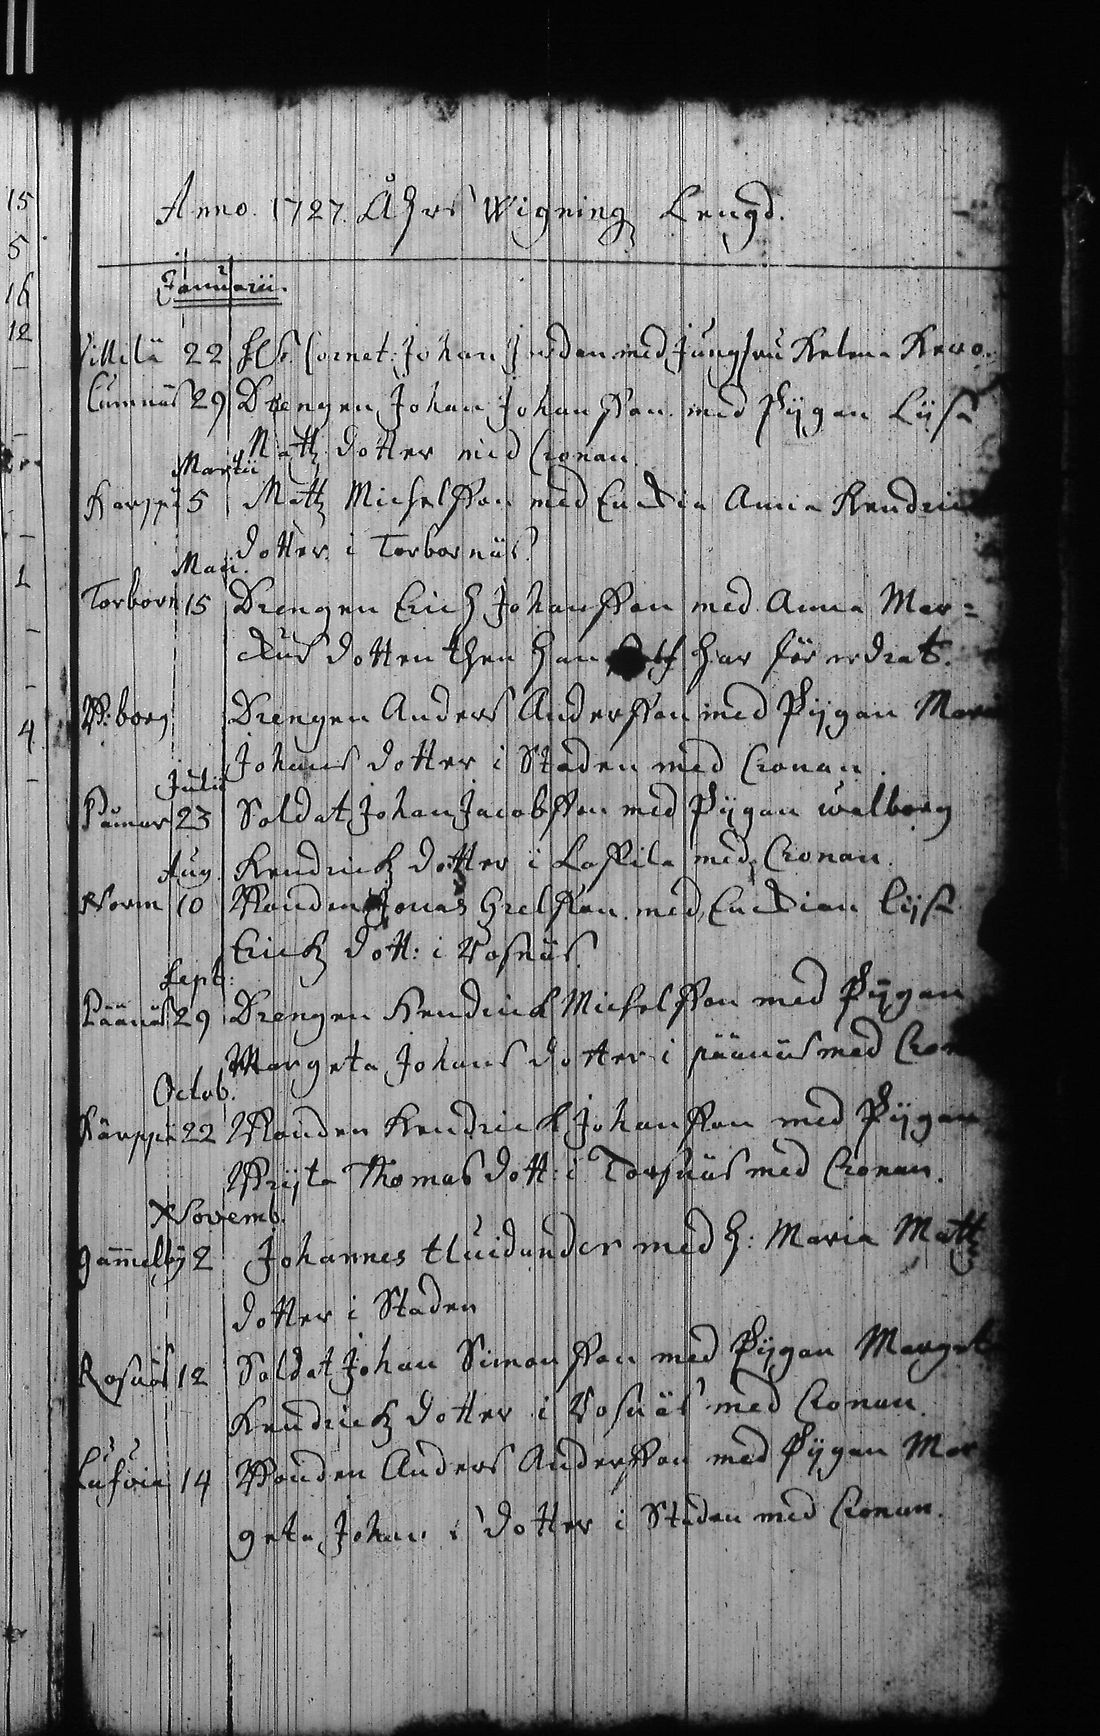 15
5
16
12
1
4
Anno. 1727. Åhrs Wigning Lengd.
Januarii.
22 Cornet: Johan med Jungfru Helena
29 Drengen Johan Johansson med Pijgan Lijsa
Matz dotter med Cronan.
Martii
Karppi 5 Matz Michelsson med Enckia Anna Hendrich
dotter i Torbornäs.
Maii.
Torborn 15 Drengen Erich Johansson med Anna Mar=
ckus dotter then han har
B:borg Drengen Anders Andersson med Pijgan Maria
Johans dotter i Staden med Cronan.
Julii
Påmar 23 Soldat Johan Jacobsson med Pijgan Walborg
Hendrichz dotter i Lassila med Cronan.
Aug.
Norm 10 Bonden Jonas Grelsson med Enckian Lijsa
Erichz dott: i Rosnäs.
Sept:
Päänäs 29 Drengen Hendrich Michelsson med Pijgan
Margeta Johans dotter i päänäs med Cron
Octob.
Karppi 22 Bonden Hendrich Johansson med Pijgan
Brijta Thomas dott: i Torsnäs med Cronan.
Novemb.
Gammelby 2 Johannes med H: Maria Mattz
dotter i Staden
Rosnäs 12 Soldat Johan Simonsson med Pijgan Margeta
Hendrichz dotter i Rosnäs med Cronan.
Lufvia 14 Bonden Anders Andersson med Pijgan Mar
geta Johans dotter i Staden med Cronan.